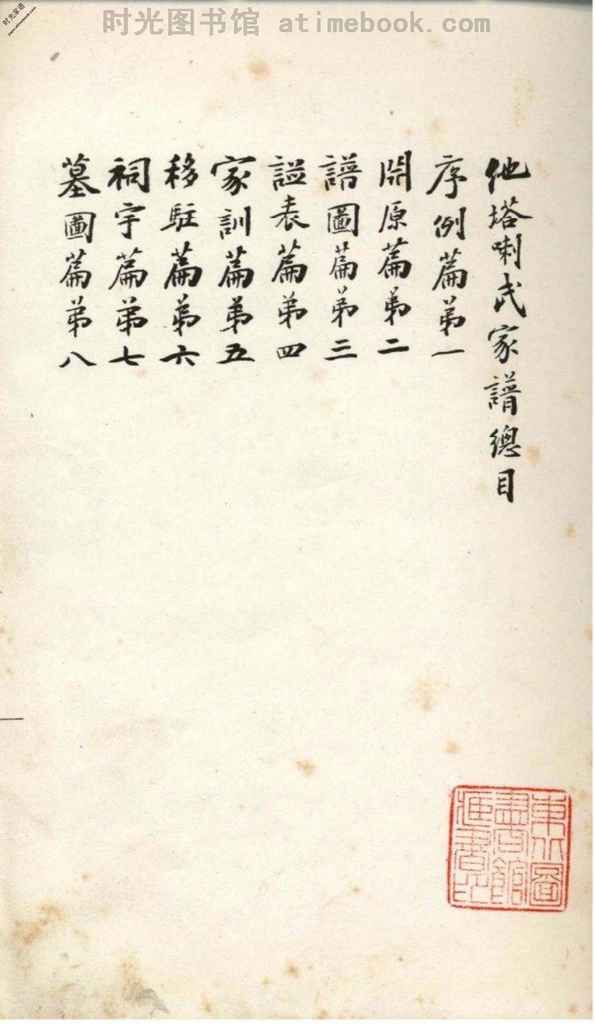 时光图书馆 - atimebook.com
时光家谱
www.atimebook.com
他塔喇氏家譜總目
序例篇第一
開原篇第二
譜圖篇第三
謚表篇第四
家訓篇第五
移駐篇第六
祠宇篇第七
墓圖篇第八